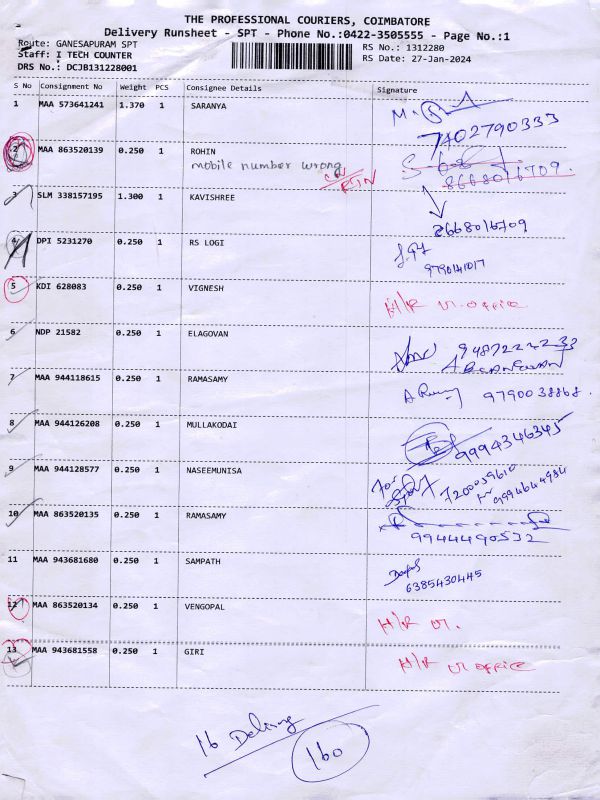 THE PROFESSIONAL COURIERS, COIMBATORE
Delivery Runsheet - SPT - Phone No.:0422-3505555 - Page No.:1
Route: GANESAPURAM SPT
RS No.: 1312280
Staff: I TECH COUNTER
RS Date: 27-Jan-2024
DRS No.: DCJB131228001
S No Consignment No Weight PCS Consignee Details Signature
1 MAA 573641241 1.370 1 SARANYA
7402790333
2 MAA 863520139 0.250 1 ROHIN
mobile number wrong
RTN
8668016709.
3 SLM 338157195 1.300 1 KAVISHREE
8668016709
4 DPI 5231270 0.250 1 RS LOGI
9790141017
5 KDI 628083 0.250 1 VIGNESH
H/R office
6 NDP 21582 0.250 1 ELAGOVAN
7 MAA 944118615 0.250 1 RAMASAMY
9790038868.
8 MAA 944126208 0.250 1 MULLAKODAI
9994346345
9 MAA 944128577 0.250 1 NASEEMUNISA
For
7200039610
10 MAA 863520135 0.250 1 RAMASAMY
9944490532
11 MAA 943681680 0.250 1 SAMPATH
6385430445
12 MAA 863520134 0.250 1 VENGOPAL
H/R
13 MAA 943681558 0.250 1 GIRI
H/R office
16 Delivery
160